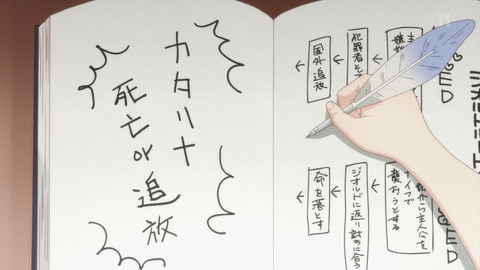 カタリナ
死亡or追放
ED
犯罪者と
国外追放
ED
から主人公を
ナイフで
襲おうとする
ジオルドに返り討ちに合う
命を落とす